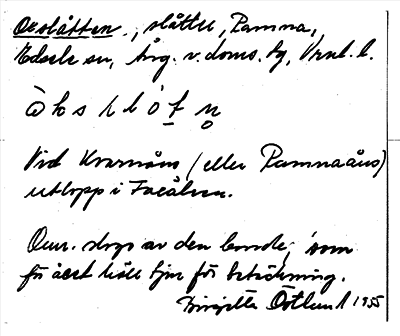 Oxslåtten, slåtter, Ramna,
Edsele sn, Ång. v. doms. tg, Vrnl. l.
Vid Kvarnåns (eller Ramnaåns)
utlopp i Faxälven.
Omr. slogs av den bonde, som
för året höll tjur för betäckning.
Birgitta Östlund 1955